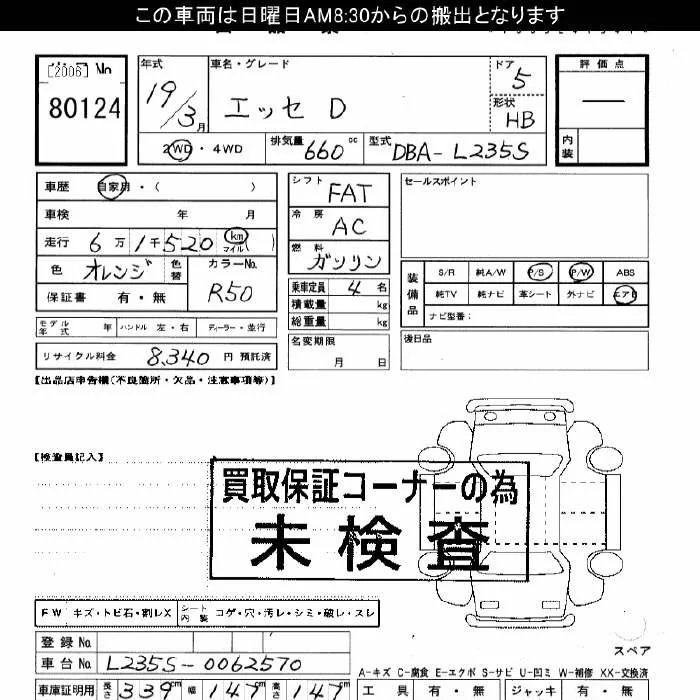 この車両は日曜日AM8:30からの搬出となります
[2006] No
80124
年式
19/3月
車名・グレード
エッセ D
ドア
5
形状
HB
評価点
―
内装
2WD・4WD
排気量
660cc
型式
DBA-L235S
車歴 自家用・( )
車検 年 月
走行 6万1千520 km マイル( )
色 オレンジ 色替
カラーNo.
R50
保証書 有・無
シフト
FAT
冷房
AC
燃料
ガソリン
乗車定員 4 名
積載量 kg
総重量 kg
名変期限
月 日
セールスポイント
装備品
S/R 純A/W P/S P/W ABS
純TV 純ナビ 革シート 外ナビ エアB
ナビ型番:
後日品
モデル年式 年 ハンドル 左・右 ディーラー・並行
リサイクル料金 8,340 円 預託済
【出品店申告欄(不良箇所・欠品・注意事項等)】
【検査員記入】
買取保証コーナーの為
未検査
FW キズ・トビ石・割レX
シート内装 コゲ・穴・汚レ・シミ・破レ・スレ
登録 No.
車台 No. L235S-0062570
車庫証明用 長さ 339cm 幅 147cm 高さ 147cm
スペア
A-キズ C-腐食 E-エクボ S-サビ U-凹ミ W-補修 XX-交換済
工具 有・無 ジャッキ 有・無